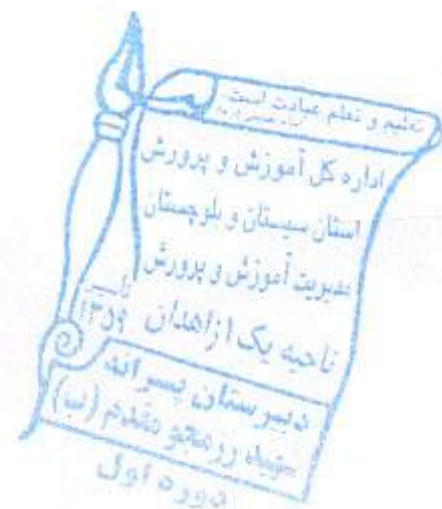 تعلیم و تعلم عبادت است
اداره کل آموزش و پرورش
استان سیستان و بلوچستان
مدیریت آموزش و پرورش
ناحیه یک زاهدان
۱۳۵۹
دبیرستان پسرانه
شهید رزمجو مقدم (ب)
دوره اول